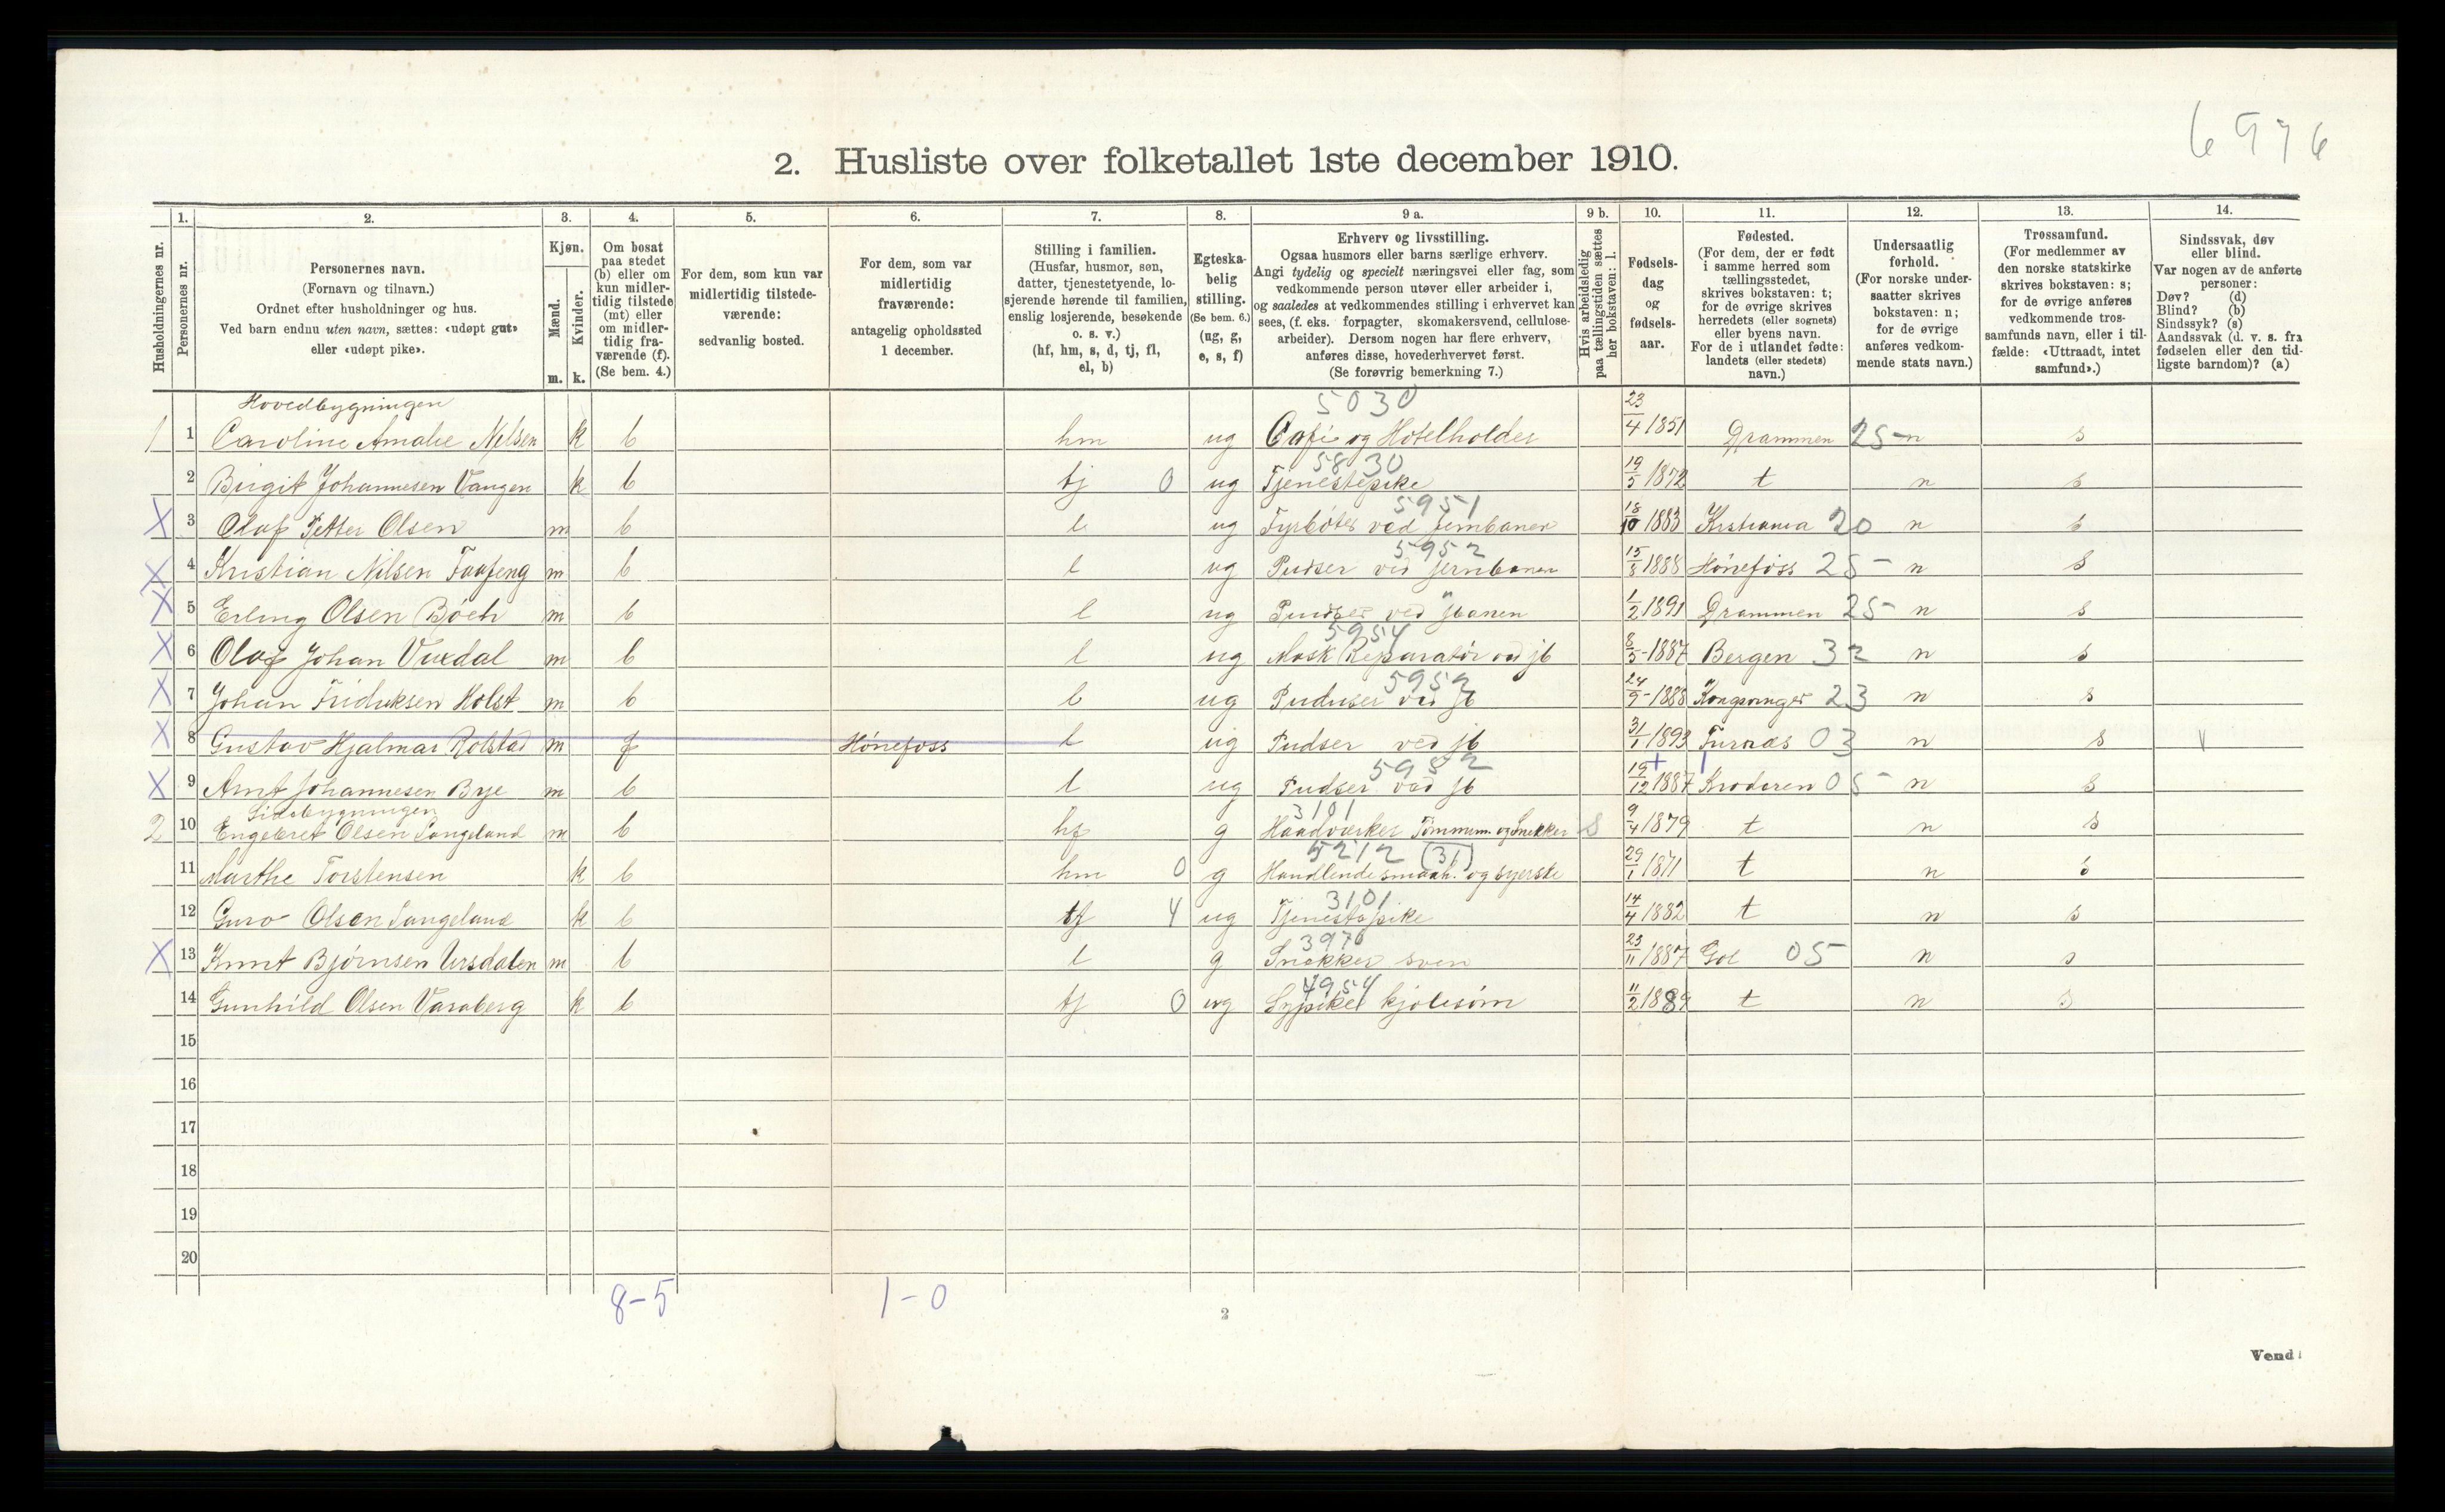 6976
2. Husliste over folketallet 1ste december 1910.
Husholdningernes nr.
1. Personernes nr.
2. Personernes navn.
(Fornavn og tilnavn.)
Ordnet efter husholdninger og hus.
Ved barn endnu uten navn, sættes: «udøpt gut»
eller «udøpt pike».
3. Kjøn.
Mænd. m.
Kvinder. k.
4. Om bosat
paa stedet
(b) eller om
kun midler-
tidig tilstede
(mt) eller
om midler-
tidig fra-
værende (f).
(Se bem. 4.)
5. For dem, som kun var
midlertidig tilstede-
værende:
sedvanlig bosted.
6. For dem, som var
midlertidig
fraværende:
antagelig opholdssted
1 december.
7. Stilling i familien.
(Husfar, husmor, søn,
datter, tjenestetyende, lo-
sjerende hørende til familien,
enslig losjerende, besøkende
o. s. v.)
(hf, hm, s, d, tj, fl,
el, b)
8. Egteska-
belig
stilling.
(Se bem. 6.)
(ug, g,
e, s, f)
9 a. Erhverv og livsstilling.
Ogsaa husmors eller barns særlige erhverv.
Angi tydelig og specielt næringsvei eller fag, som
vedkommende person utøver eller arbeider i,
og saaledes at vedkommendes stilling i erhvervet kan
sees, (f. eks. forpagter, skomakersvend, cellulose-
arbeider). Dersom nogen har flere erhverv,
anføres disse, hovederhvervet først.
(Se forøvrig bemerkning 7.)
9 b. Hvis arbeidsledig
paa tællingstiden sættes
her bokstaven: l.
10. Fødsels-
dag
og
fødsels-
aar.
11. Fødested.
(For dem, der er født
i samme herred som
tællingsstedet,
skrives bokstaven: t;
for de øvrige skrives
herredets (eller sognets)
eller byens navn.
For de i utlandet fødte:
landets (eller stedets)
navn.)
12. Undersaatlig
forhold.
(For norske under-
saatter skrives
bokstaven: n;
for de øvrige
anføres vedkom-
mende stats navn.)
13. Trossamfund.
(For medlemmer av
den norske statskirke
skrives bokstaven: s;
for de øvrige anføres
vedkommende tros-
samfunds navn, eller i til-
fælde: «Uttraadt, intet
samfund».)
14. Sindssvak, døv
eller blind.
Var nogen av de anførte
personer:
Døv? (d)
Blind? (b)
Sindssyk? (s)
Aandssvak (d. v. s. fra
fødselen eller den tid-
ligste barndom)? (a)
Hovedbygningen 5030
1 1 Caroline Amalie Nilsen k b hm ug Cafe og Hotelholder 23/4 1851 Drammen 25 n s
5830
2 Birgit Johannesen Vangen k b tj 0 ug Tjenestepike 19/5 1872 t n s
5951
X 3 Olaf Petter Olsen m b l ug Fyrbøter ved Jernbanen 18/10 1883 Kristiania 20 n s
5952
X 4 Kristian Nilsen Faafeng m b l ug Pudser ved jernbanen 15/8 1888 Hønefoss 25 n s
X 5 Erling Olsen Bøch m b l ug Pudser ved jbanen 1/2 1891 Drammen 25 n s
5954
X 6 Olaf Johan b l ug Mask Reparatør ved jb 8/5 1887 Bergen 32 n s
5952
X 7 Johan Fridriksen Holst m b l ug Pudser ved jb 24/9 1888 Kongsvinger 23 n s
X 8 Gustav Hjalmar Rolstad m f Hønefoss l ug Pudser ved jb 31/1 1893 Furnæs 03 n s
5952
X 9 Arnt Johannesen Bye m b l ug Pudser ved jb 19/12 1887 Krøderen 05 n s
Sidebygningen 3101
2 10 Engebret Olsen Sangeland m b hf g Haadværker Tømmerm. og Snekker s 9/4 1879 t n s
5212 (31)
11 Marthe Torstensen k b hm 0 g Handlende smaah. og syerske 29/1 1871 t n s
3101
12 Guro Olsen Sangeland k b tj 4 ug Tjenestepike 14/4 1882 t n s
3976
X 13 Knut Bjørnsen Ursdalen m b l g Snekker sven 23/11 1887 Gol 05 n s
4954
14 Gunhild Olsen Varaberg k b tj 0 ug Sypike kjolesøm 11/2 1889 t n s
15
16
17
18
19
20
8-5 1-0
3
Vend!